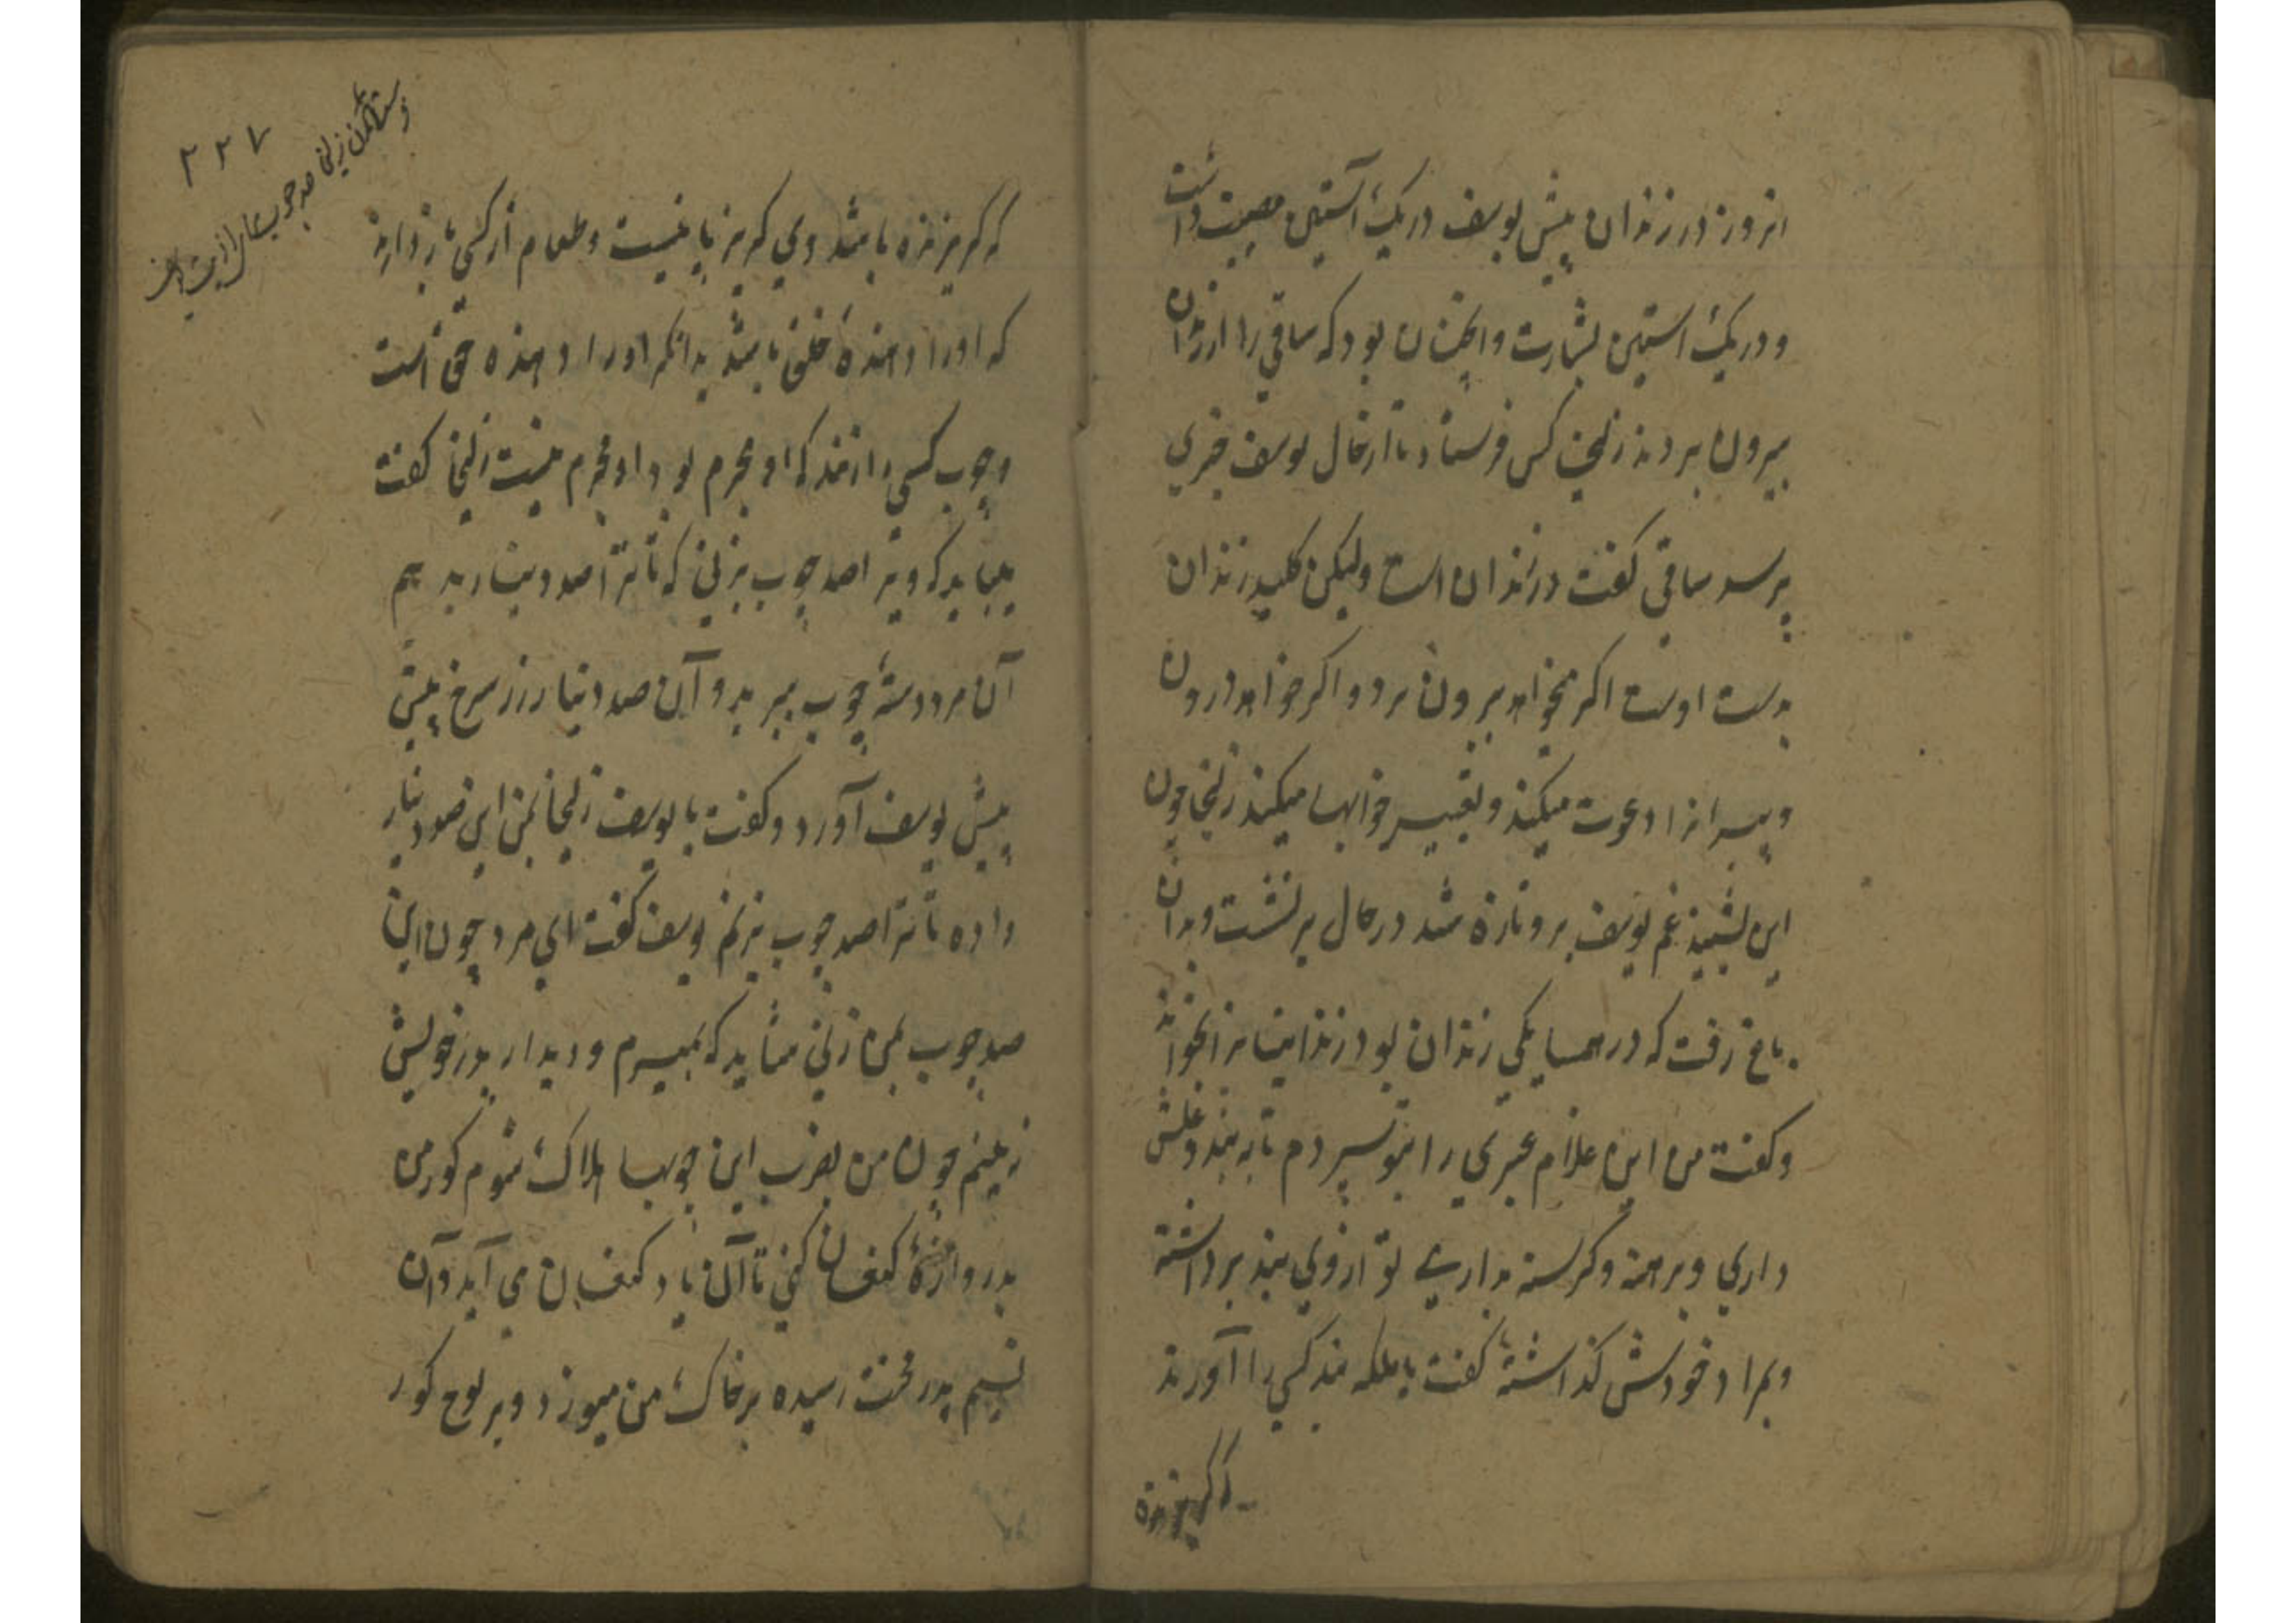 انروز در زندان پیش یوسف در یک آستین مصیبت داشت
و در یک استین بشارت و انچنان بود که ساقی را از زندان
بیرون بردند زلیخا کس فرستاد تا از حال یوسف خبری
پرسد ساقی گفت در زندان است ولیکن کلید زندان
بدست اوست اکر میخواهد بیرون برد و اکر خواهد درون
و پیرانرا دعوت میکند و تعبیر خوابها میکند زلیخا چون
این بشنید غم یوسف برو تازه شد در حال بر نشست و بدان
باغ رفت که در همسایکی زندان بود زندانبانرا بخواند
و کفت من این غلام عبری را بتو سپردم تا به بند و غلش
داری و برهنه و کرسنه بداری تو از وی بند برداشته
و بمراد خودش کذاشتهٔ کفت یا ملکه بند کسی را آورند
که کریزنده
۲۲۷
فرستادن زلیخا صد چوب
که کریزنده باشد وی کریز پا نیست و طعام از کسی باز دارند
که اورا دهنده خلق باشد بدانکه اورا دهنده حق است
و چوب کسی را زنند که او مجرم بود او مجرم نیست زلیخا کفت
بباید که ویرا صد چوب بزنی که تا ترا صد دینار بدهم
آن مرد دستهٔ چوب ببرید و آن صد دینار زر سرخ پیش
پیش یوسف آورد و کفت یا یوسف زلیخا بمن این صد دینار
داده تا ترا صد چوب بزنم یوسف کفت ای مرد چون این
صد چوب بمن زنی شاید که بمیرم و دیدار پدر خویش
نه بینم چون من بضرب این چوبها هلاک شوم کور من
بدروازهٔ کنعان کنی تا آن باد کنعان می آید و آن
نسیم پدر محنت رسیده بر خاک من میوزد و بر لوح کور